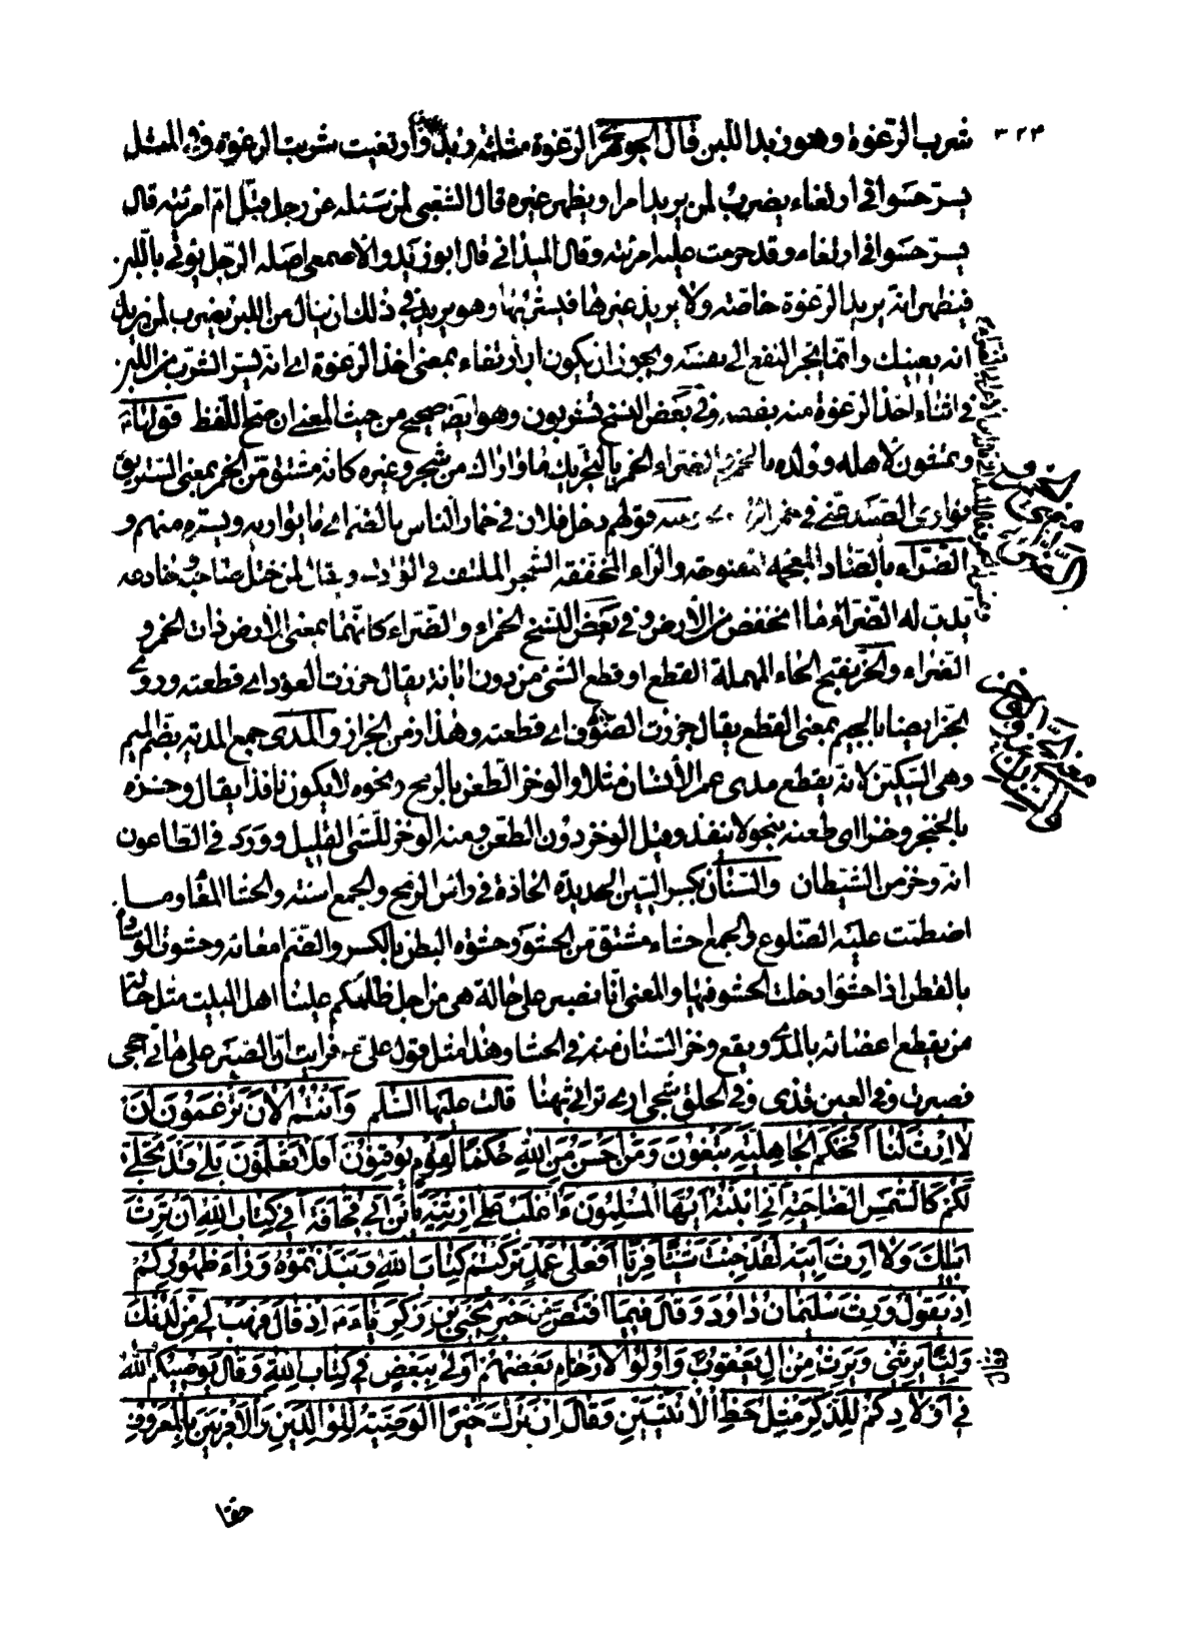 ٣٢٣
شرب الرّغوة وهو زبد اللبن قال الجوهري الرّغوة مثلثة زبد وارتغيت شربت الرغوة وفي المثل
يسرّ حسوا في ارتغاء يضرب لمن يريد امرا ويظهر غيره قال الشعبي لمن سئله عن رجل قبّل امّ امرئته قال
يسرّ حسوا في ارتغاء وقد حرمت عليه امرئته وقال الميداني قال ابو زيد والاصمعي اصله الرّجل يؤتى باللّبن
فيظهر انه يريد الرغوة خاصّة ولا يريد غيرها فيشربها وهو يريد في ذلك ان ينال من اللبن يضرب لمن يريك
انه يعينك وانّما يجرّ النفع الى نفسه ويجوز ان يكون الارتغاء بمعنى اخذ الرغوة اي انه يسرّ الشرب من اللبن
في اثناء اخذ الرغوة منه بفمه وفي بعض النسخ تشربون وهو ايضا صحيح من حيث المعنى ان صحّ اللّفظ قولها
وتمشون لاهله وولده بالخمر والضراء الخمر بالتحريك ما واراك من شجر وغيره كانه مشتق من الخمر بمعنى الستر يقال
توارى الصيد عنّي في خمر الوادي ومنه قولهم دخل فلان في خمار الناس بالضم اي ما يواريه ويستره منهم و
الضّراء بالضاد المعجمة المفتوحة والراء المخففة الشجر الملتف في الوادي ويقال لمن ختل صاحبه وخادعه
يدب له الضراء وما انخفض من الارض وفي بعض النسخ الخمراء والضراء كانهما بمعنى الارض ذات الخمر و
الضراء والحزّ بفتح الحاء المهملة القطع او قطع الشيء من دون ابانة يقال حززت العود اي قطعته وروي
الجزّ ايضا بالجيم بمعنى القطع يقال جززت الصّوف اي قطعته وهذا زمن الجزاز والمدى جمع المدية بضم الميم
وهي السّكين لانه يقطع مدى عمر الانسان مثلا والوخز الطعن بالرمح ونحوه لا يكون نافذا يقال وخزه
بالخنجر وخزا اي طعنه بنحو لا ينفذ وقيل الوخز دون الطعن ومنه الوخز للشيء القليل وورد في الطاعون
انه وخز من الشيطان والسّنان بكسر السّين الحديدة الحادّة في راس الرمح والجمع اسنّة والحشا المعا وما
اضطمّت عليه الضلوع والجمع احشاء مشتق من الحشو وحشوة البطن بالكسر والضم امعائه وحشوت الوسادة
بالقطن اذا حشوا دخلت الحشو فيها والمعنى انّا نصبر على حالة هي من اجل ظلمكم علينا اهل البيت مثل حالة
من يقطع اعضائه بالمدى ويقع وخز السنان منه في الحشا وهذا مثل قول علي ع فرايت انّ الصبر على هاتى احجى
فصبرت وفي العين قذى وفي الحلق شجى ارى تراثي نهبا قالت عليها السّلم وَاَنْتُمُ الْانَ تَزْعَمُونَ اَنْ
لا اِرْثَ لَنا اَفَحُكْمَ الْجاهِلِيَّةِ تَبْغُونَ وَمَنْ اَحْسَنُ مِنَ اللهِ حُكْمًا لِقَوْمٍ يُوقِنُونَ اَفَلا تَعْلَمُونَ بَلى قَدْ تَجَلّى
لَكُمْ كَالشَّمْسِ الضّاحِيَةِ اَنّي ابْنَتُهُ اَيُّهَا الْمُسْلِمُونَ ءَاُغْلَبُ عَلى اِرْثِيَهْ يَا بْنَ اَبي قُحافَةَ اَفي كِتابِ اللهِ اَنْ تَرِثَ
اَباكَ وَلا اَرِثَ اَبِيَهْ لَقَدْ جِئْتَ شَيْئًا فَرِيًّا اَفَعَلى عَمْدٍ تَرَكْتُمْ كِتابَ اللهِ وَنَبَذْتُمُوهُ وَراءَ ظُهُورِكُمْ
اِذْ يَقُولُ وَوَرِثَ سُلَيْمانُ داوُدَ وَقالَ فيمَا اقْتَصَّ مِنْ خَبَرِ يَحْيَى بْنِ زَكَرِيّاءَ ع اِذْ قالَ فَهَبْ لي مِنْ لَدُنْكَ
وَلِيًّا يَرِثُني وَيَرِثُ مِنْ الِ يَعْقُوبَ وَاُولُوا الْاَرْحامِ بَعْضُهُمْ اَوْلى بِبَعْضٍ في كِتابِ اللهِ وَقالَ يُوصيكُمُ اللهُ
في اَوْلادِكُمْ لِلذَّكَرِ مِثْلُ حَظِّ الْاُنْثَيَيْنِ وَقالَ اِنْ تَرَكَ خَيْرًا الْوَصِيَّةُ لِلْوالِدَيْنِ وَالْاَقْرَبينَ بِالْمَعْرُوفِ
حقا